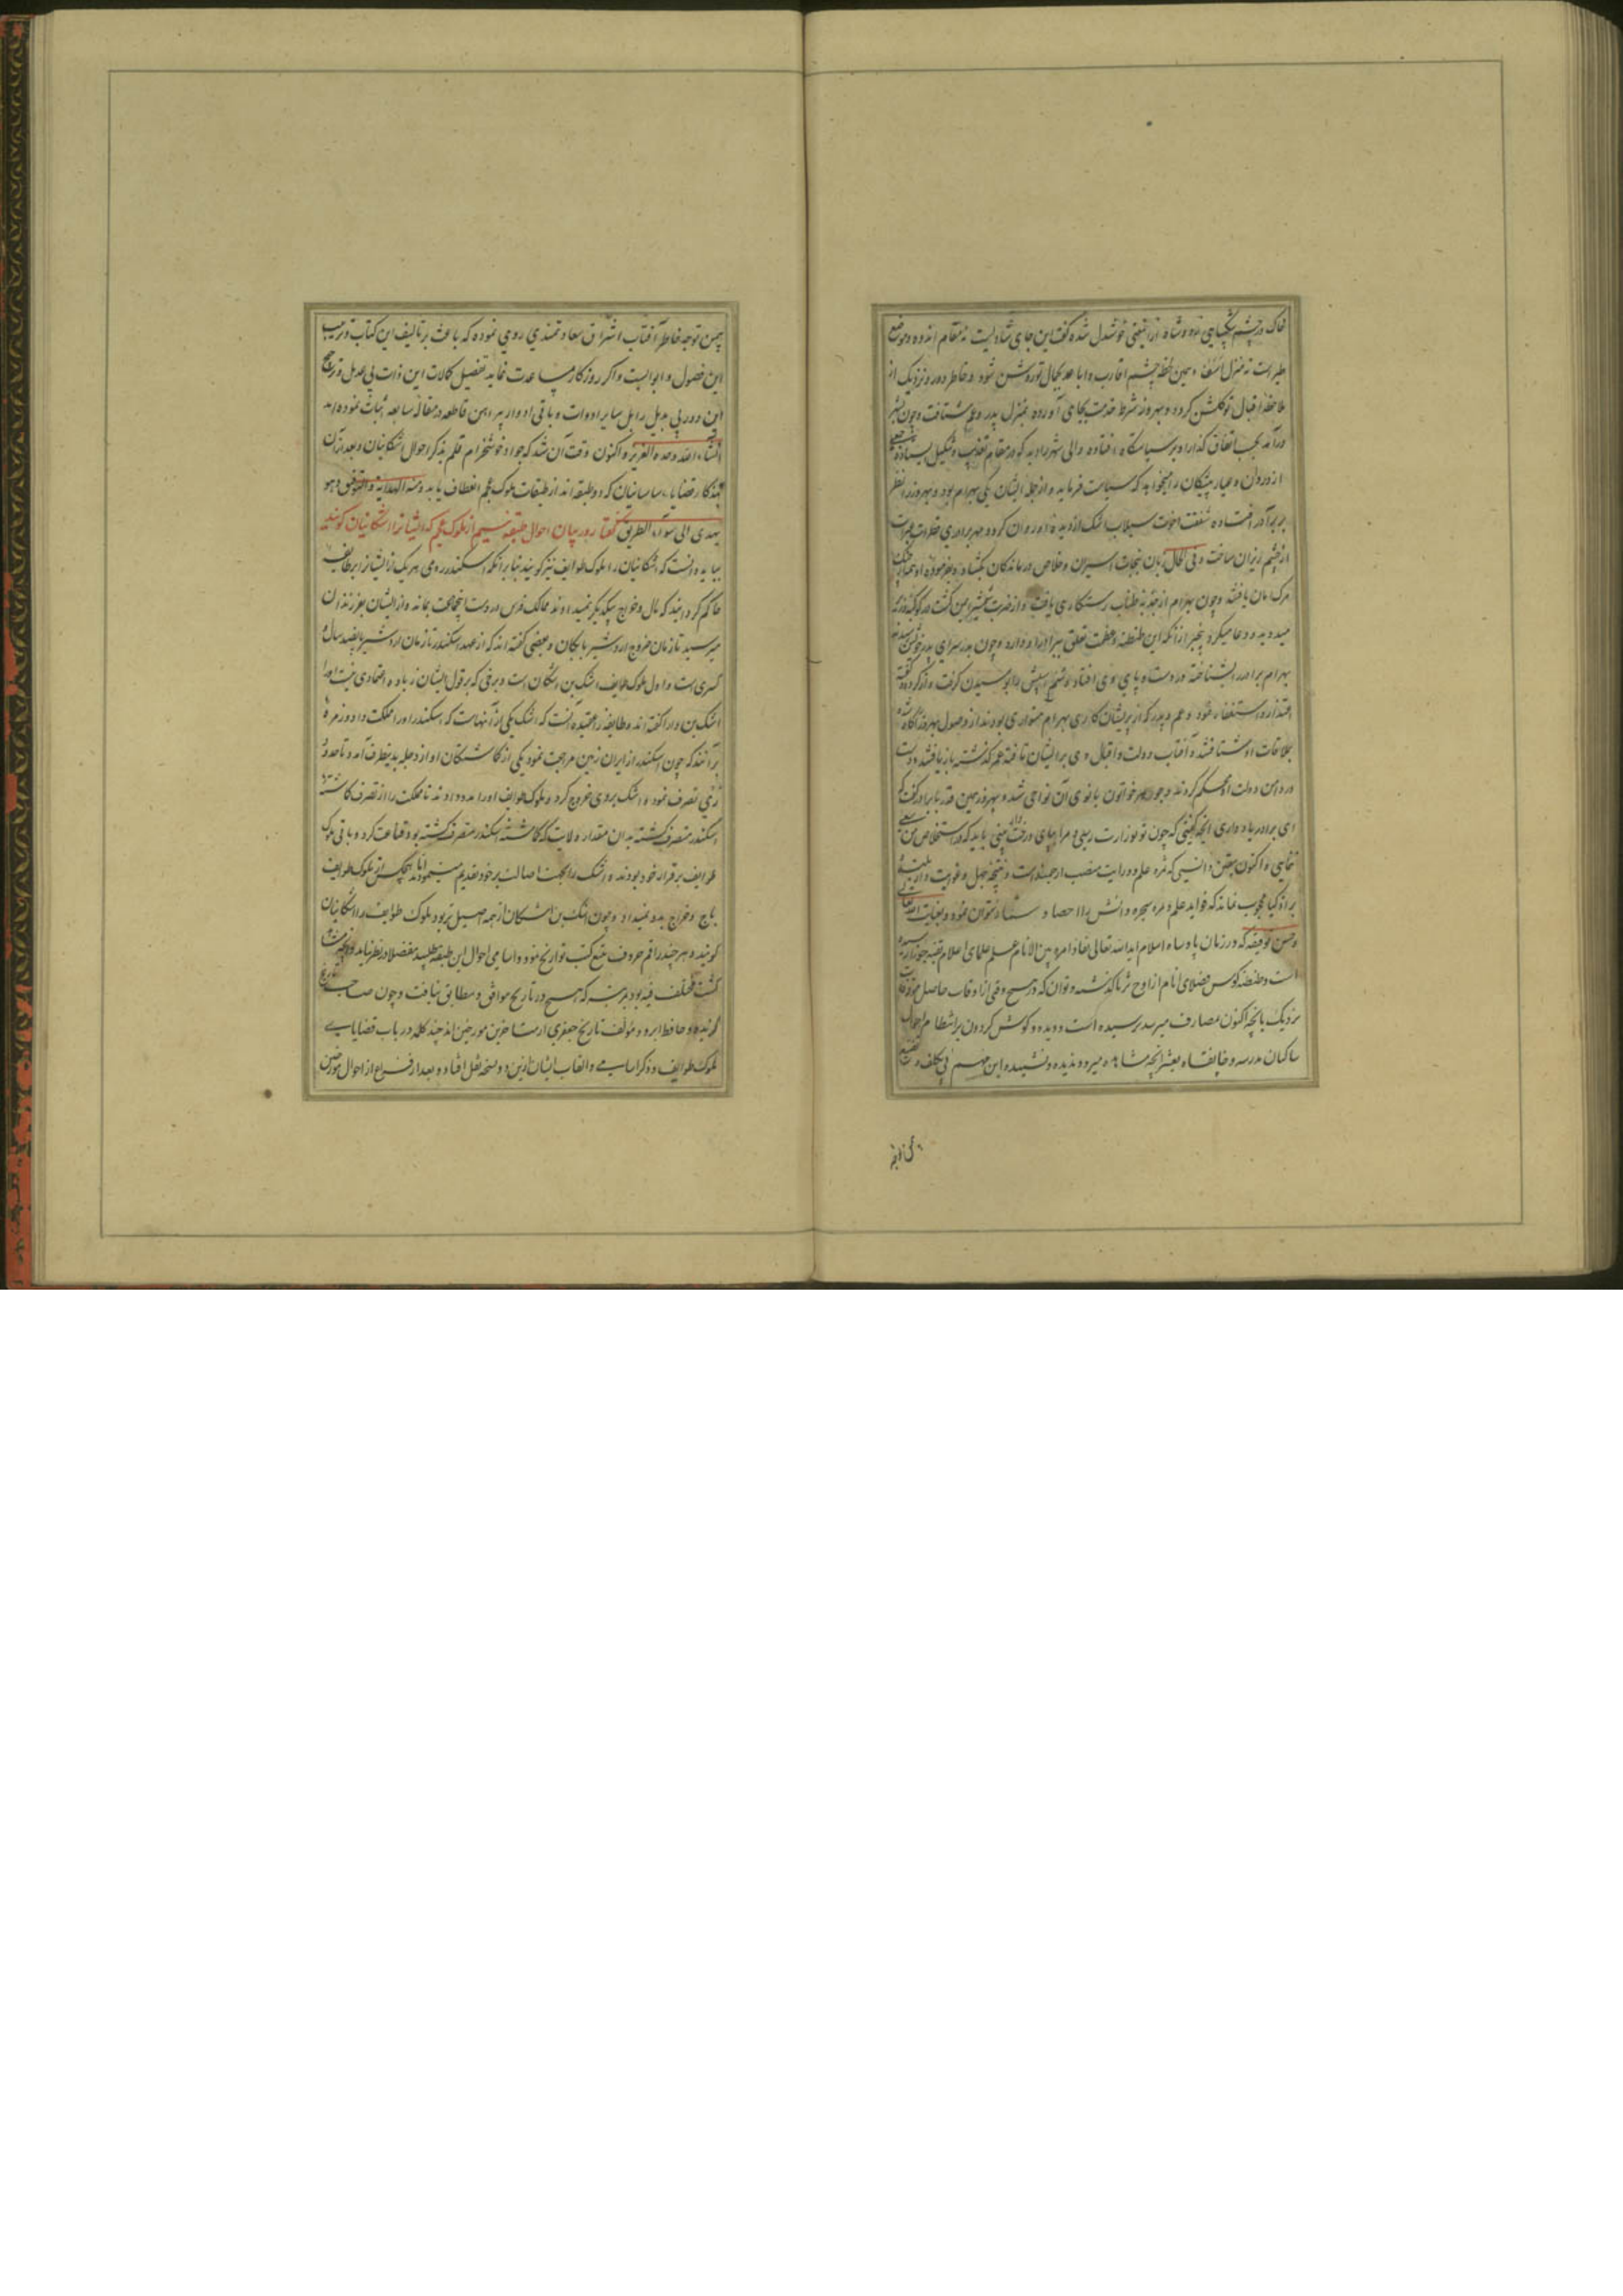 خاک در چشم شکیبایی زده و شاه ازین معنی خوشدل شده گفت این جای شادیست نه مقام اندوه و موضع
طیر است نه منزل اسف و همین لحظه چشم اقارب و اباعد بجمال تو روشن شود و خاطر دور و نزدیک از
ملاحظه اقبال تو گلشن گردد و بهروز شرط خدمت بجای آورده بمنزل پدر و عم شتافت و چون بشهر
درآمد بحسب اتفاق گذار او بر سیاستگاه افتاده والی شهر را دید که در مقام تعذیب و تنکیل ایستاده
از دزدان و عیار پیشگان را میخواهد که سیاست فرماید و از جمله ایشان یکی بهرام بود و بهروز را نظر
بر برادر افتاده شفقت اخوت سیلاب اشک از دیده او روان کرد و مهر برادری قطرات عبرت
از چشم ریزان ساخت و فی الحال زبان بنجات اسیران و خلاص درماندگان بگشاد و بفرموده او همه از چنگ
مرگ امان یافتند و چون بهرام از جذبه طناب رستگاری یافت و از ضربت شمشیر ایمن گشت در کوکبه وزیر
میدوید و دعا میکرد بیخبر از آنکه این طنطنه و عظمت تعلق ببرادر او دارد و چون بدر سرای پدر خویش رسیدند
بهرام برادر را بشناخته در دست و پای وی افتاد و سم اسبش را بوسیدن گرفت و از کرده و گفته
اعتذار و استغفار نمود و عم و پدر که از پریشان کاری بهرام متواری بودند از وصول بهروز آگاه شده
بملاقات او شتافتند و آفتاب دولت و اقبال وی بر ایشان تافته عمر گذشته باز یافتند و دست
در دامن دولت او محکم کردند و جوهر خواتون بانوی آن نواحی شد و بهروز همین قدر با برادر گفت که
ای برادر یاد داری آنچه گفتی که چون تو بوزارت رسی و مرا بپای دار بینی باید که در استخلاص من سعی
نمایی و اکنون بیقین دانستی که ثمره علم و درایت منصب ارجمند است و نتیجه جهل و غوایت دار بلند
بر اذکیا محجوب نماند که فواید علم و ثمره شجره دانش را احصا و ستفا نتوان نمود و بعنایت الله تعالی
و حسن توفیقه که در زمان پادشاه اسلام ایدالله تعالی نفاذ امره بین الانام علم علمای اعلام بقبه جوزا رسیده
است و طنطنه کوس فضلای انام از اوج ثریا گذشته و توان که در هیچ وقتی از اوقات حاصل موقوفات
نزدیک بآنچه اکنون بمصارف میرسد نرسیده است و دیده و گوش گردون برانتظام احوال
ساکنان مدرسه و خانقاه بعشر آنچه مشاهده میرود ندیده و نشنیده و این مهم بی تکلف و تصنع
بیمن توجه خاطر آفتاب اشراق سعادتمندی روی نموده که باعث بر تالیف این کتاب و ترتیب
این فصول و ابوابست و اگر روزگار مساعدت نماید تفصیل کمالات این ذات بی عدیل و ترجیح
این دور بی بدیل را بل سایر ادوات و باقی ادوار ببراهین قاطعه در مقاله سابعه اثبات نموده آید
انشاء الله وحده العزیز و اکنون وقت آن شد که جواد خوشخرام قلم بذکر احوال اشکانیان و بعد از آن
بتذکار قضایاء ساسانیان که دو طبقه اند از طبقات ملوک عجم انعطاف یابد و منه الهدایة و التوفیق و هو
یهدی الی سواء الطریق گفتار در بیان احوال طبقه سیم از ملوک عجم که ایشانرا اشکانیان گویند
بباید دانست که اشکانیان را ملوک طوایف نیز گویند بنا بر آنکه اسکندر رومی هر یک از ایشانرا بر طایفه
حاکم گردانید که مال و خراج بیکدیگر نمیدادند ممالک فرس در دست آنجماعت بماند و از ایشان بفرزندان
میرسید تا زمان خروج اردشیر بابکان و بعضی گفته اند که از عهد اسکندر تا زمان اردشیر پانصد سال و
کسری است و اول ملوک طوایف اشک بن اشکان است و برقی که بر قول ایشان زیاده اعتمادی نیست او را
اشک بن دارا گفته اند و طایفه را عقیده آنست که اشک یکی از آنهاست که اسکندر او را مملکت داد و زمره
برآنند که چون اسکندر از ایران زمین مراجعت نمود یکی از گماشتگان او از دجله بدینطرف آمد و تا حدود
ری تصرف نمود و اشک بروی خروج کرد و ملوک طوایف او را مدد دادند تا مملکت را از تصرف گماشته
اسکندر متصرف گشته بدان مقدار ولایت که گماشته اسکندر متصرف گشته بود قناعت کرد و باقی ملوک
طوایف بر قرار خود بودند و اشک را بجهت اصالت بر خود تقدیم مینمودند اما هیچکس از ملوک طوایف
باج و خراج بدو نمیداد و چون اشک بن اشکان از همه اصیل تر بود ملوک طوایف را اشکانیان
گویند و هر چند راقم حروف تتبع کتب تواریخ نمود و اسامی احوال این طبقه طلبید مفصلا در نظر نیامد و آنچه
گشت مختلف فیه بود بمرتبه که هیچ دو تاریخ موافق و مطابق نیافت و چون صاحب تاریخ
گزیده و حافظ ابرو و مؤلف تاریخ جعفری از متاخرین مورخین اند چند کلمه در باب قضایای
ملوک طوایف و ذکر اسامی و القاب ایشان ازین دو نسخه نقل افتاد و بعد از فراغ از احوال مورخین